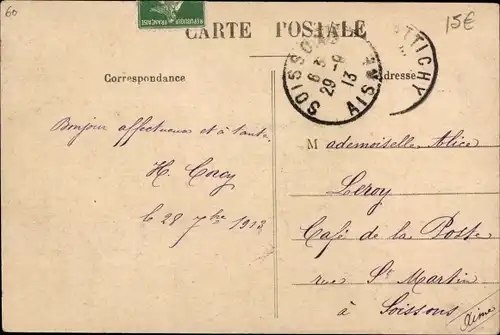 60
REPUBLIQUE FRANÇAISE
15€
CARTE POSTALE
SOISSONS AISNE
8 3
29 - 9
13
ATTICHY
Correspondance
Adresse
Bonjour affectueux et à tantôt
H. Corcy
le 28 7bre 1913
Mademoiselle Alice
Leroy
Café de la Poste
rue St Martin
à Soissons
Aisne